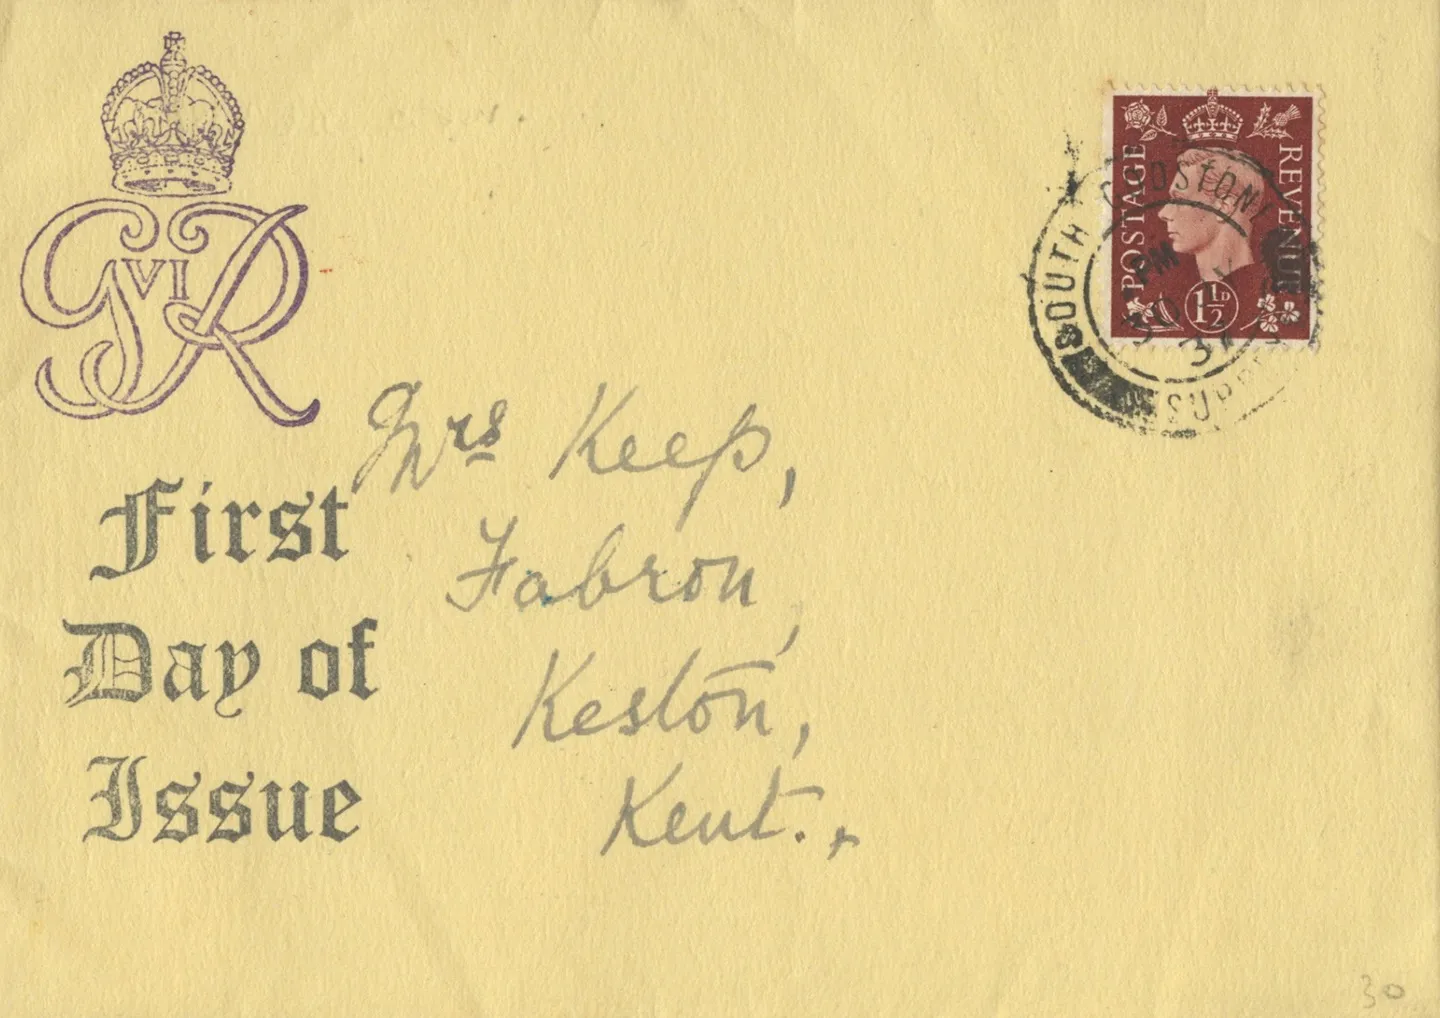 G VI R
First
Day of
Issue
POSTAGE
REVENUE
1 1/2 D
SOUTH GODSTONE
PM
30 JY
37
SURREY
Mrs Keep,
Fabron,
Keston,
Kent.
30